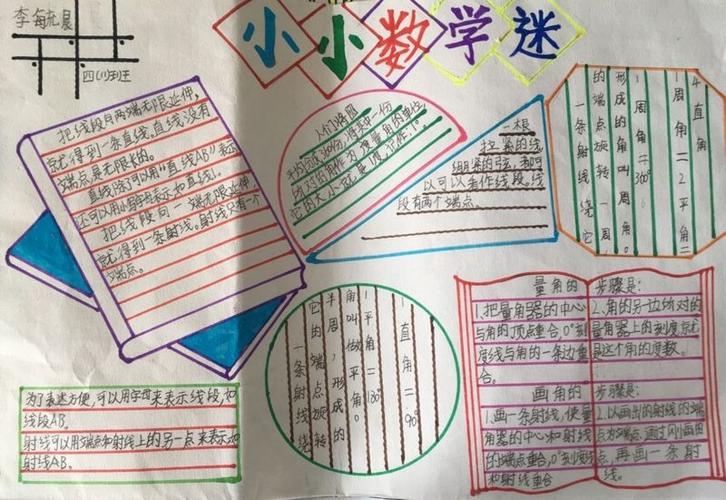 李毓晨
四(川)班王
小小数学迷
把线段向两端无限延伸,
就得到一条直线。直线没有
端点,是无限长的。
直线除了可以用“直线AB”表示
还可以用小写字母表示如直线l。
把线段向一端无限延伸,
就得到一条射线。射线只有一个
端点。
人们将圆
平均分成360份,将其中一份
所对的角作为度量角的单位,
它的大小就是1度,记作1°。
一根
拉紧的线,
绷紧的弦,都可
以可以看作线段。线
段有两个端点。
一条射线绕它
的端点旋转一周
形成的角叫周角。
1周角=360°
1周角=2平角=
4直角
为了表达方便,可以用字母来表示线段,如
线段AB。
射线可以用端点和射线上的另一点来表示如
射线AB。
一条射线绕
它的端点旋转
半周,形成的
角叫做平角。
1平角=180°
1直角=90°
量角的步骤是:
1.把量角器的中心
与角的顶点重合,0°刻
度线与角的一条边重
合。
2.角的另一边所对的
量角器上的刻度就
是这个角的度数。
画角的步骤是:
1.画一条射线,使量
角器的中心和射线
的端点重合,0°刻度线
和射线重合
2.以画出的射线的端
点为端点,通过刚画的
点,再画一条射
线。